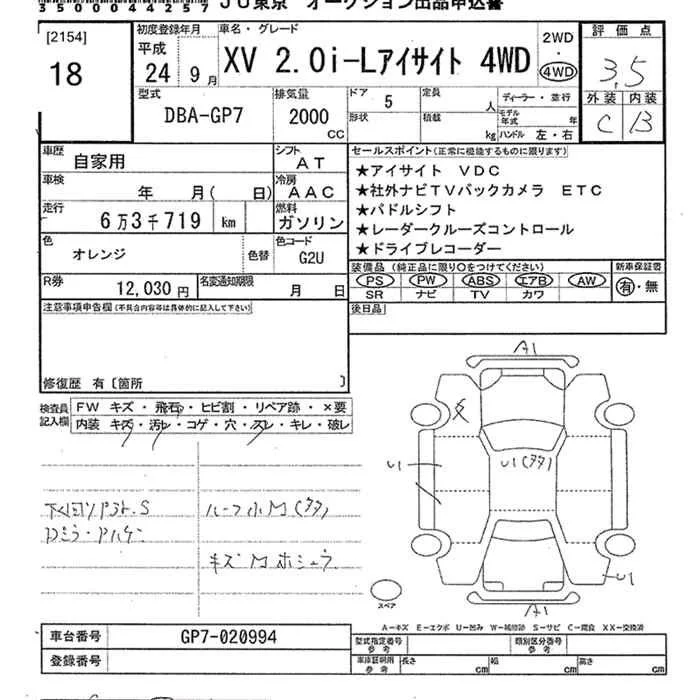 3500044257 JU東京 オークション出品申込書
[2154]
18
初度登録年月
平成
24 9月
車名・グレード
XV 2.0i-Lアイサイト 4WD
2WD
・
4WD
評価点
3.5
外装 内装
C B
型式
DBA-GP7
排気量
2000
CC
ドア 5
形状
定員
人
積載
kg
ディーラー・並行
モデル年式 年
ハンドル 左・右
車歴
自家用
シフト
AT
車検
年 月( 日)
冷房
AAC
走行
6万3千719 km
燃料
ガソリン
色
オレンジ
色替
色コード
G2U
R券
12,030円
名変通知期限
月 日
セールスポイント(正常に機能するものに限ります)
★アイサイト VDC
★社外ナビTVバックカメラ ETC
★パドルシフト
★レーダークルーズコントロール
★ドライブレコーダー
装備品(純正品に限り○をつけてください)
PS PW ABS エアB AW
SR ナビ TV カワ
新車保証書
有・無
後日品
注意事項申告欄(不具合内容等は具体的に記入して下さい)
修復歴 有〔箇所 〕
検査員
記入欄
FW キズ・飛石・ヒビ割・リペア跡・×要
内装 キズ・汚レ・コゲ・穴・スレ・キレ・破レ
ルーフ小M(タタ)
キズMホシュウ
A1
U1
U1(タタ)
U1
A1
スペア
A-キズ E-エクボ U-凹み W-補修跡 S-サビ C-腐食 XX-交換済
車台番号 GP7-020994
登録番号
型式指定番号
参考
類別区分番号
参考
車庫証明用
参考
長さ cm
幅 cm
高さ cm